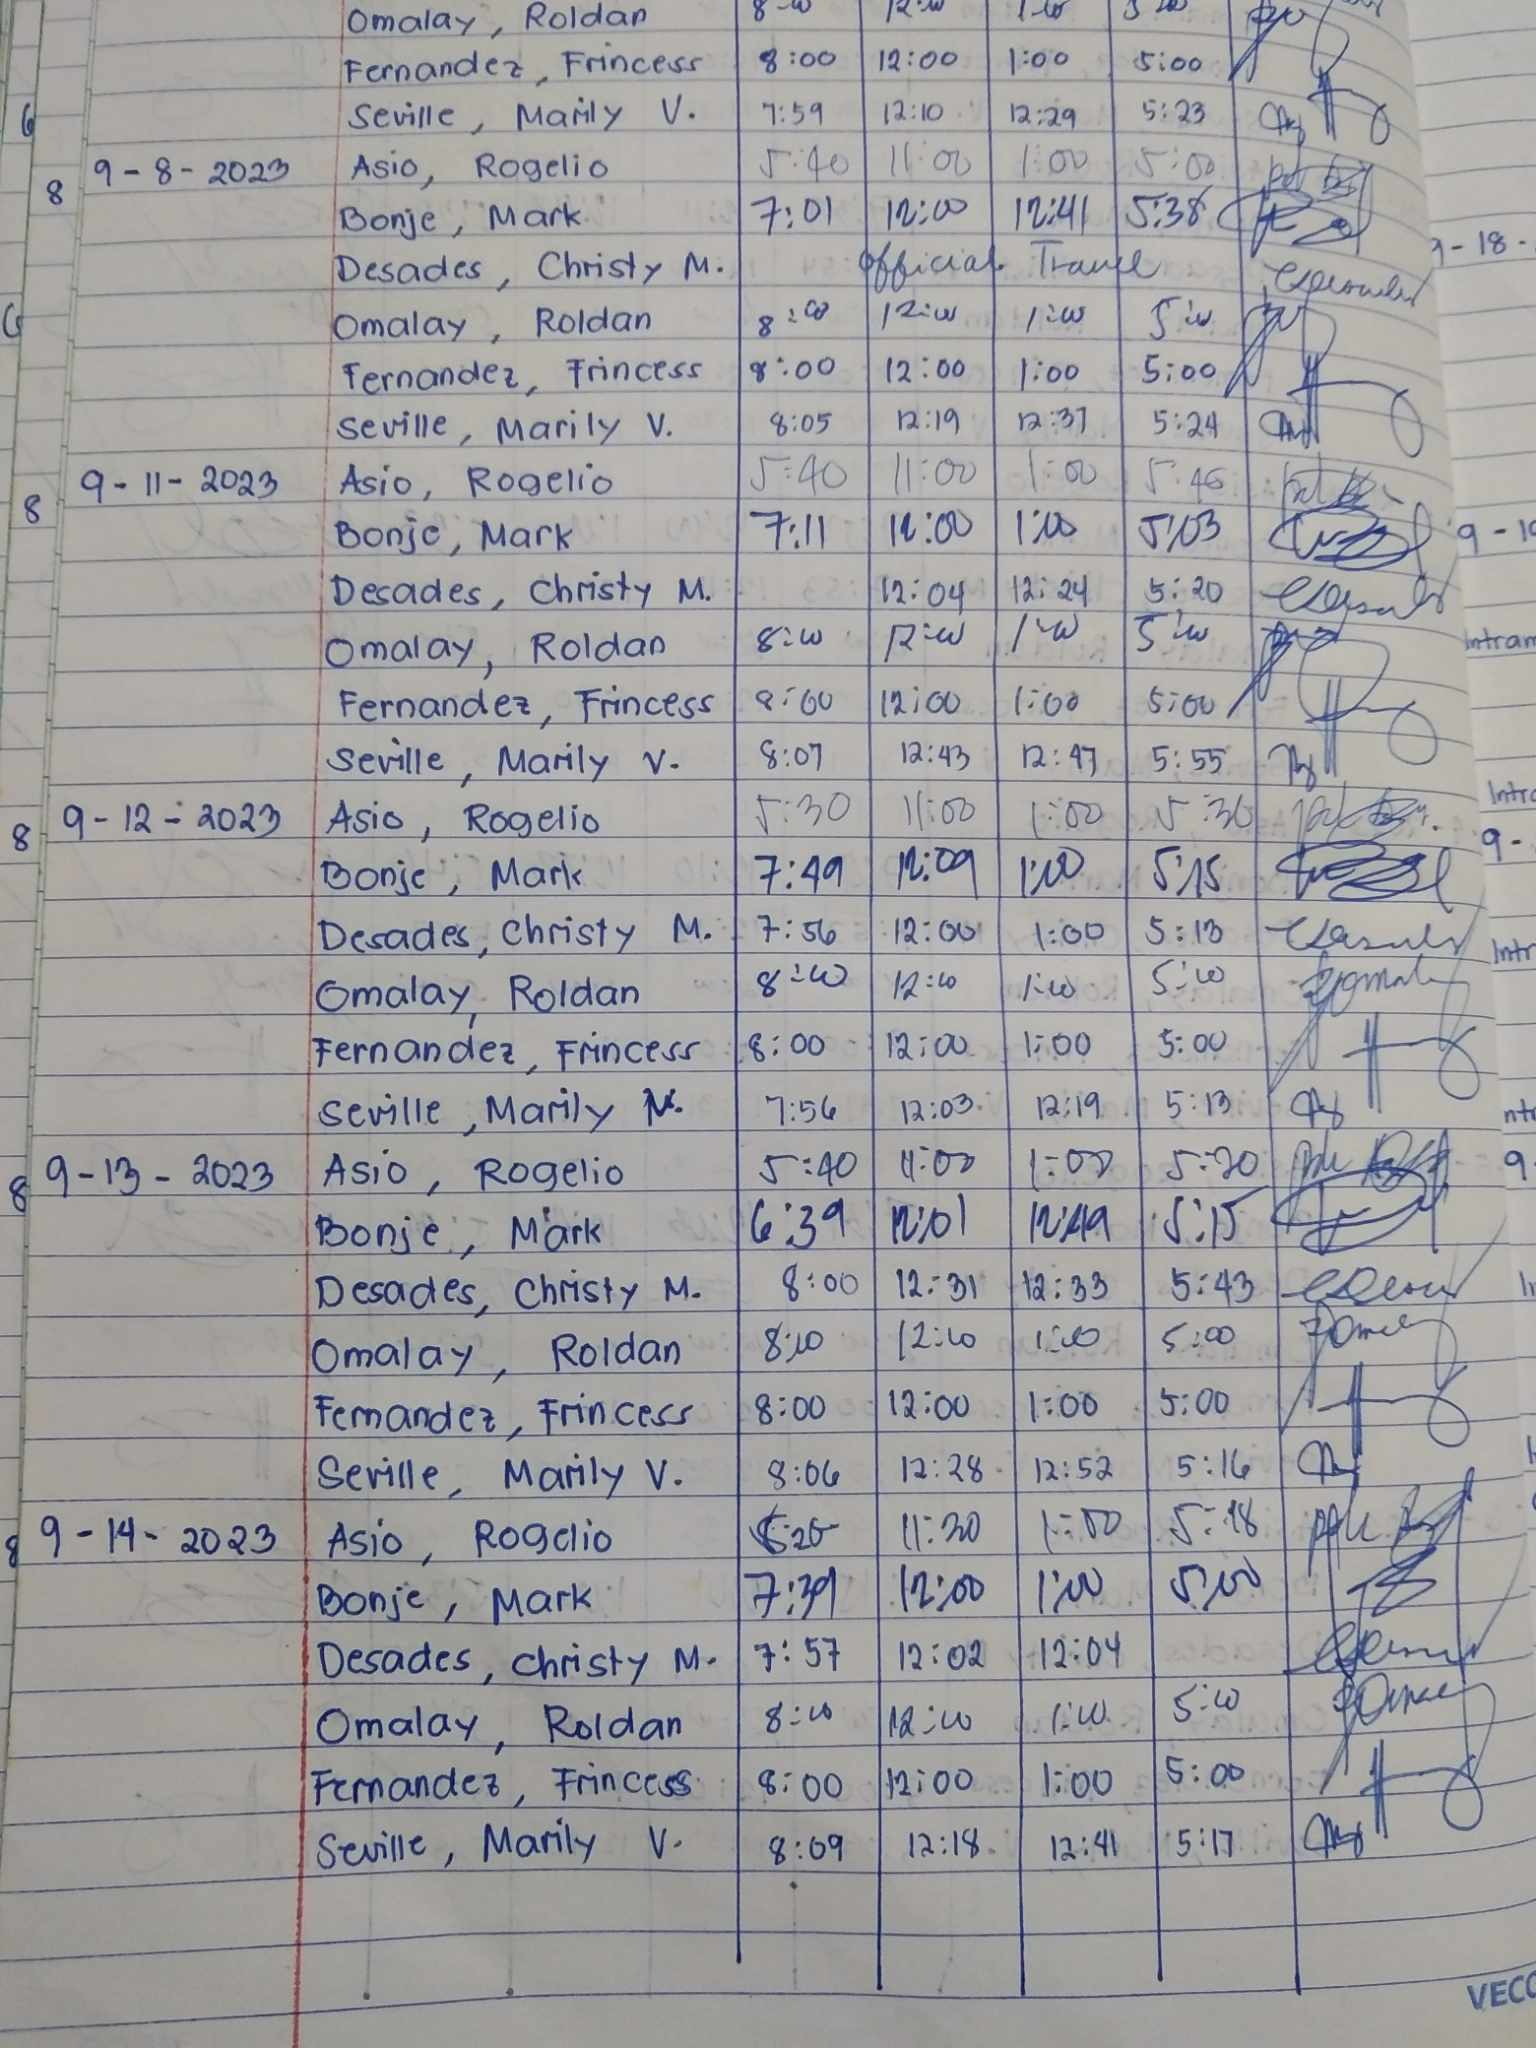 Omalay, Roldan 8:00 12:00 1:00 5:00
Fernandez, Frincess 8:00 12:00 1:00 5:00
6 Seville, Marily V. 7:59 12:10 12:29 5:23
8 9-8-2023 Asio, Rogelio 5:40 11:00 1:00 5:00
Bonje, Mark 7:01 12:00 12:41 5:38
Desades, Christy M. Official Travel
9-18-
Omalay, Roldan 8:00 12:00 1:00 5:00
Fernandez, Frincess 8:00 12:00 1:00 5:00
Seville, Marily V. 8:05 12:19 12:37 5:24
8 9-11-2023 Asio, Rogelio 5:40 11:00 1:00 5:46
Bonje, Mark 7:11 12:00 1:00 5:03
Desades, Christy M. 12:04 12:24 5:20
Omalay, Roldan 8:00 12:00 1:00 5:00
Fernandez, Frincess 8:00 12:00 1:00 5:00
Seville, Marily V. 8:07 12:43 12:47 5:55
8 9-12-2023 Asio, Rogelio 5:30 11:00 1:00 5:30
Bonje, Mark 7:49 12:09 1:00 5:15
Desades, Christy M. 7:56 12:00 1:00 5:13
Omalay, Roldan 8:00 12:00 1:00 5:00
Fernandez, Frincess 8:00 12:00 1:00 5:00
Seville, Marily V. 7:56 12:03 12:19 5:13
8 9-13-2023 Asio, Rogelio 5:40 11:00 1:00 5:20
Bonje, Mark 6:39 12:01 12:49 5:15
Desades, Christy M. 8:00 12:31 12:33 5:43
Omalay, Roldan 8:00 12:00 1:00 5:00
Fernandez, Frincess 8:00 12:00 1:00 5:00
Seville, Marily V. 8:06 12:28 12:52 5:16
8 9-14-2023 Asio, Rogelio 11:30 1:00 5:18
Bonje, Mark 7:39 12:00 1:00 5:00
Desades, Christy M. 7:57 12:02 12:04
Omalay, Roldan 8:00 12:00 1:00 5:00
Fernandez, Frincess 8:00 12:00 1:00 5:00
Seville, Marily V. 8:09 12:18 12:41 5:17
VECO